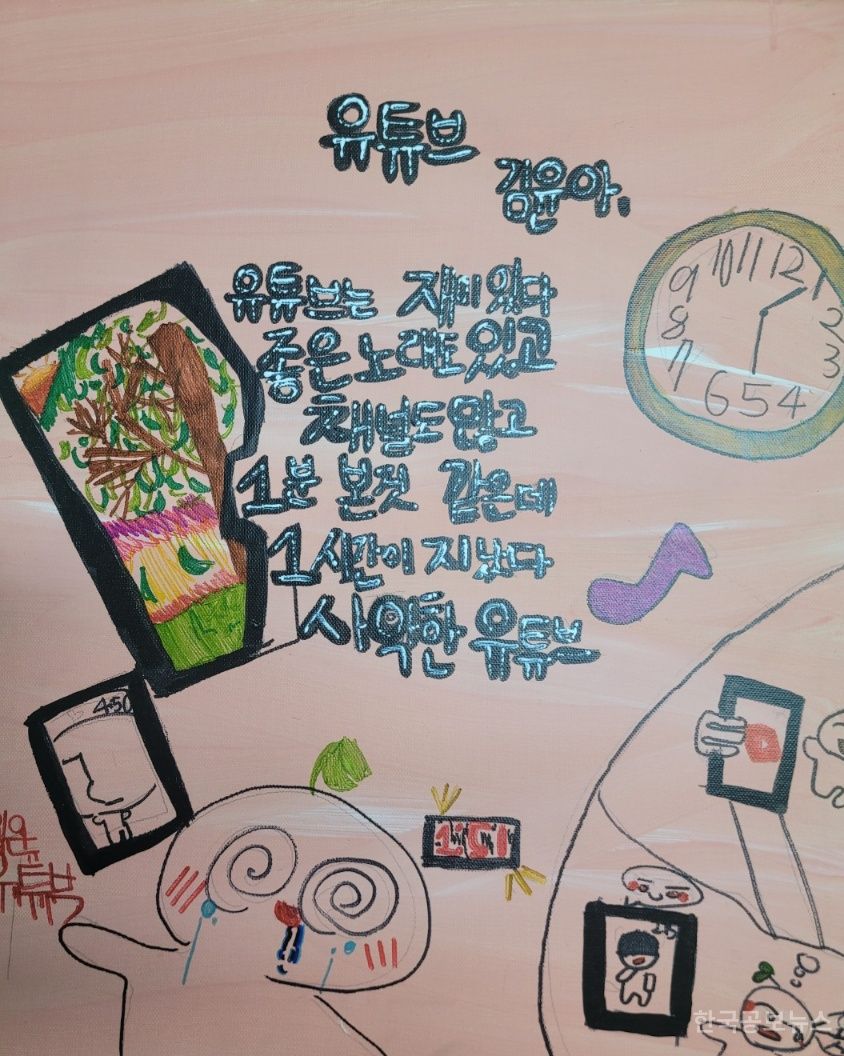 유튜브
김윤아.
유튜브는 재미있다
좋은 노래도 있고
채널도 많고
1분 본것 같은데
1시간이 지났다
사악한 유튜브
10 11 12 1
9 2
8 3
7 6 5 4
4:50
한국공보뉴스